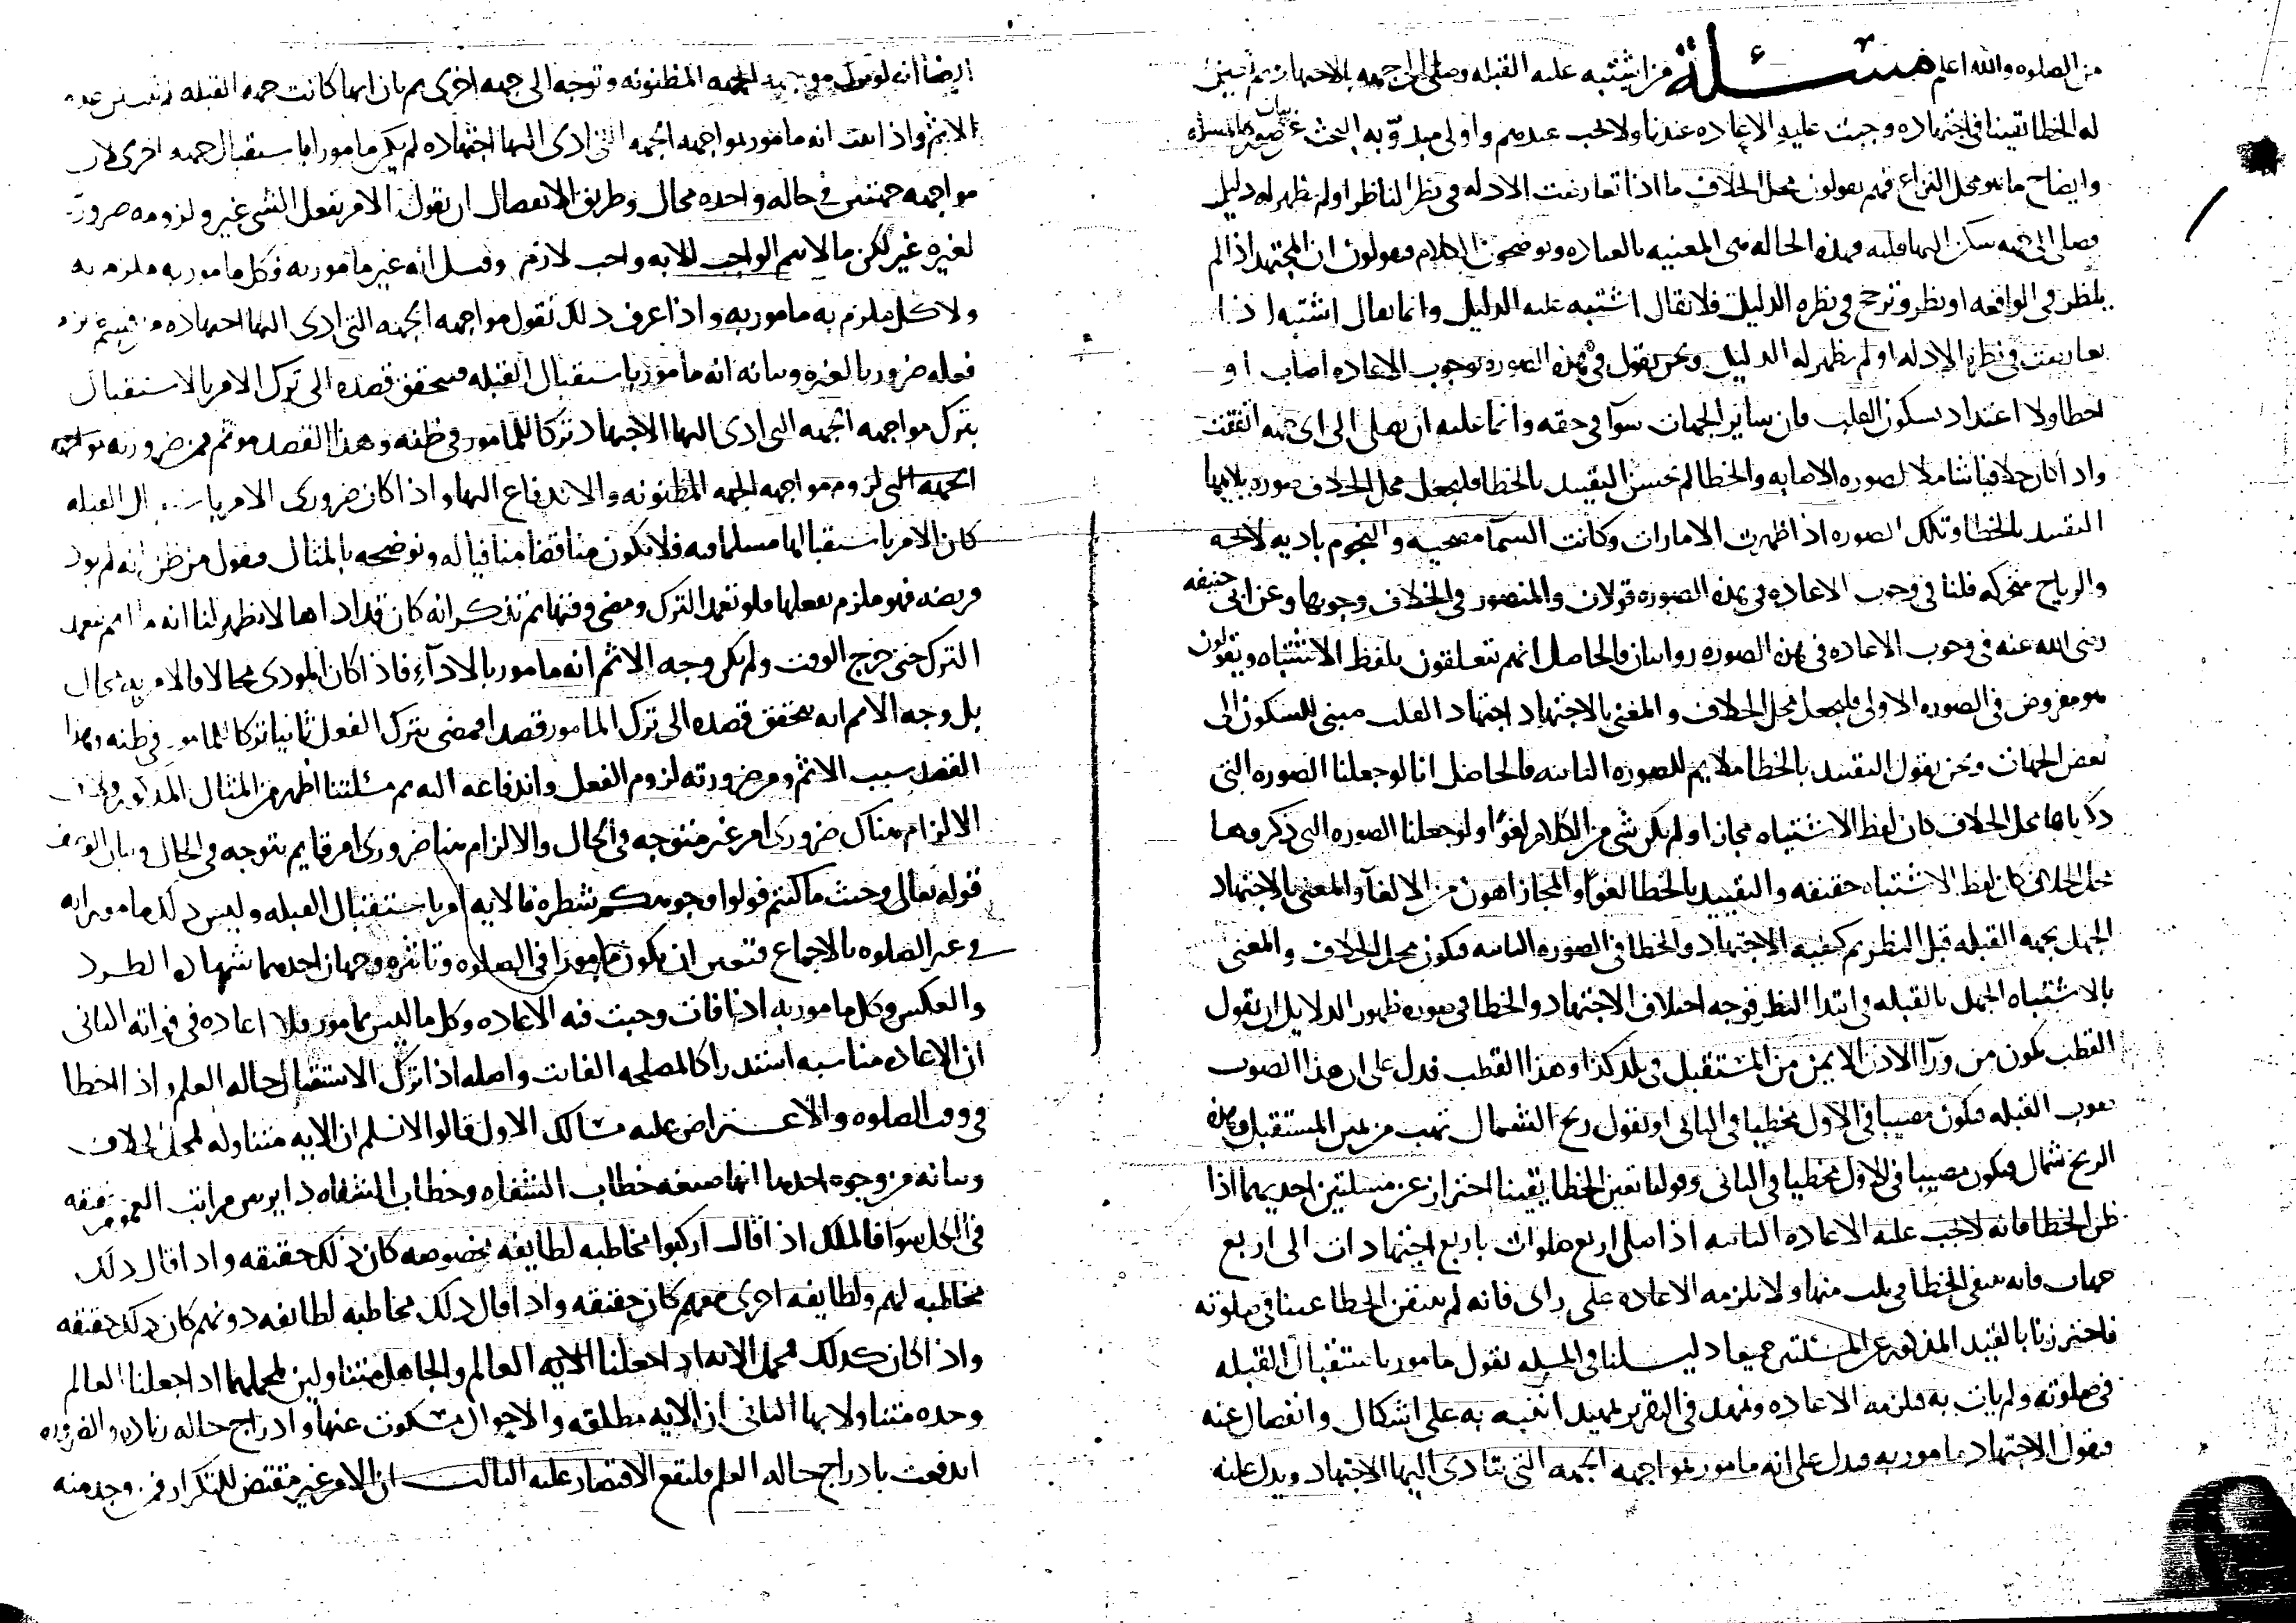 من الصلوه والله اعلم مسئلة من اشتبه عليه القبله وصلى الى جهه بالاجتهاد ثم تبين
له الخطا يقينا في اجتهاده وجبت عليه الاعاده عندنا ولا تجب عندهم واولى مبدو به البحث عن بيان صوره المسله
وايضاح ما هو محل النزاع فهم يقولون محل الخلاف ما اذا تعارضت الادله في نظر الناظر او لم يظهر له دليل
فصلى الى جهه سكن اليها قلبه فهذه الحاله هى المعنيه بالعباره ويوضحون الكلام فيقولون ان المجتهد اذا لم
ينظر في الواقعه او نظر وترجح في نظره الدليل فلا يقال اشتبه عليه الدليل وانما يقال اشتبه اذا
تعارضت في نظره الادله او لم يظهر له الدليل ونحن نقول في هذه الصوره بوجوب الاعاده اصاب او
اخطا ولا اعتداد بسكون القلب فان ساير الجهات سوآ في حقه وانما عليه ان يصلى الى اى جهه اتفقت
واذا كان خلافنا شاملا لصوره الاصابه والخطا لم يحسن التقييد بالخطا فليجعل محل الخلاف صوره يلايمها
التقييد بالخطا وتلك الصوره اذا ظهرت الامارات وكانت السمآ مصحيه والنجوم باديه لائحه
والرياح متحركه فلنا في وجوب الاعاده في هذه الصوره قولان والمنصور في الخلاف وجوبها وعن ابى حنيفه
رضى الله عنه في وجوب الاعاده في هذه الصوره روايتان فالحاصل انهم يتعلقون بلفظ الاشتباه ويقولون
هو مفروض في الصوره الاولى فليجعل محل الخلاف والمعنى بالاجتهاد اجتهاد القلب مبنى للسكون الى
بعض الجهات ونحن نقول التقييد بالخطا ملايم للصوره الثانيه فالحاصل انا لو جعلنا الصوره التى
ذكرناها محل الخلاف كان لفظ الاشتباه مجازا ولم يكن شى من الكلام لغوا ولو جعلنا الصوره التى ذكروها
محل الخلاف كان لفظ الاشتباه حقيقه والتقييد بالخطا لغوا والمجاز اهون من الالغآ والمعنى بالاجتهاد
الجهل بجهه القبله قبل النظر ثم كيفيه الاجتهاد والخطا في الصوره الثانيه فيكون محل الخلاف والمعنى
بالاشتباه الجهل بالقبله في ابتدا النظر فوجه اختلاف الاجتهاد والخطا في صوره ظهور الدلايل ان يقول
القطب يكون من ورآ الاذن الايمن من المستقبل في بلد كذا وهذا القطب فدل على ان هذا الصوب
صوب القبله فيكون مصيبا في الاول مخطيا في الثانى او يقول ريح الشمال تهب من يمين المستقبل وهذه
الريح شمال فيكون مصيبا في الاول مخطيا في الثانى وقولنا تعين الخطا يقينا احتراز عن مسلتين احديهما اذا
ظن الخطا فانه لا تجب عليه الاعاده الثانيه اذا صلى اربع صلوات باربع اجتهادات الى اربع
جهات فانه تيقن الخطا في ثلث منها ولا يلزمه الاعاده على راى فانه لم يتيقن الخطا عينا في صلوته
فاحترزنا بالقيد المذكور عن المسئلتين جميعا دليلنا في المسله نقول مامور باستقبال القبله
في صلوته ولم يات به فلزمه الاعاده ونمهد في التقرير تمهيدا ننبه به على اشكال وانفصال عنه
فيقول الاجتهاد مامور به فيدل على انه مامور بمواجهه الجهه التى يتادى اليها الاجتهاد ويدل عليه
ايضا انه لو ترك مواجهه الجهه المظنونه وتوجه الى جهه اخرى ثم بان انها كانت جهه القبله
الاثم واذا ثبت انه مامور بمواجهه الجهه التى ادى اليها اجتهاده لم يكن مامورا باستقبال جهه اخرى لان
مواجهه جهتين في حاله واحده محال وطريق الانفصال ان يقول الامر بفعل الشى غير ولزومه ضروره
لغيره غير لكن ما لا يتم الواجب الا به واجب لازم وقيل انه غير مامور به وكل مامور به ملزم به
ولا كل ملزم به مامور به واذا عرف ذلك نقول مواجهه الجهه التى ادى اليها اجتهاده
فعله ضروريا لغيره وبيانه انه مامور باستقبال القبله فيتحقق قصده الى ترك الامر بالاستقبال
بترك مواجهه الجهه التى ادى اليها الاجتهاد تركا للمامور في ظنه وهذا القصد موثم فمن ضرورته
الجهه التى لزوم مواجهه الجهه المظنونه والاندفاع اليها واذا كان ضرورى الامر القبله
كان الامر باستقبالها مسلما فيه فلا يكون مناقضا منافيا له ونوضحه بالمثال فنقول من ظن انه لم يود
فريضه فهو ملزم بفعلها فلو تعمد الترك ومضى وقتها ثم تذكر انه كان قد اداها لا يظهر لنا انه ما اثم بتعمد
الترك حتى خرج الوقت ولم يكن وجه الاثم انه مامور بالادآء فاذا كان المودى محالا فالامر به محال
بل وجه الاثم انه تحقق قصده الى ترك المامور قصدا فمضى بترك الفعل ثانيا تركا للمامور في ظنه وهذا
القصد سبب الاثم ومن ضرورته لزوم الفعل واندفاعه اليه ثم مسئلتنا اظهر من المثال المذكور
الالزام هناك ضرورى امر غير متوجه في الحال والالزام هنا ضرورى امر قايم متوجه في الحال
قوله تعالى وحيث ما كنتم فولوا وجوهكم شطره فالايه امر باستقبال القبله وليس ذلك مامورا به
في غير الصلوه بالاجماع فتعين ان يكون مامورا في الصلوه وتاثيره وجهان احدهما شهاده الطرد
والعكس وكل مامور به اذا فات وجبت فيه الاعاده وكل ما ليس بمامور فلا اعاده في فواته الثانى
ان الاعاده مناسبه استدراكا لمصلحه الفائت واصله اذا ترك الاستقبال حاله العلم واذا اخطا
في وقت الصلوه والاعتراض عليه مسالك الاول قالوا لا نسلم ان الايه متناوله لمحل الخلاف
وبيانه من وجوه احدها انها صيغه خطاب الشفاه وخطاب الشفاه مراتب العموم حقيقه
في الكل سوا فالملك اذا قال اركبوا مخاطبه لطايفه مخصوصه كان ذلك حقيقه واذا قال ذلك
مخاطبه لهم ولطايفه اخرى معهم كان حقيقه واذا قال ذلك مخاطبه لطائفه دونهم كان ذلك حقيقه
واذا كان كذلك فمجمل الايه اذا جعلنا الايه العالم والجاهل متناولين لمجملها اذا جعلنا العالم
وحده متناولا بها الثانى ان الايه مطلقه والاحوال مسكوت عنها وادراج حاله زياده والضروره
اندفعت بادراج حاله العلم فليقع الاقتصار عليه الثالث ان الامر غير مقتض للتكرار فمن وجد منه